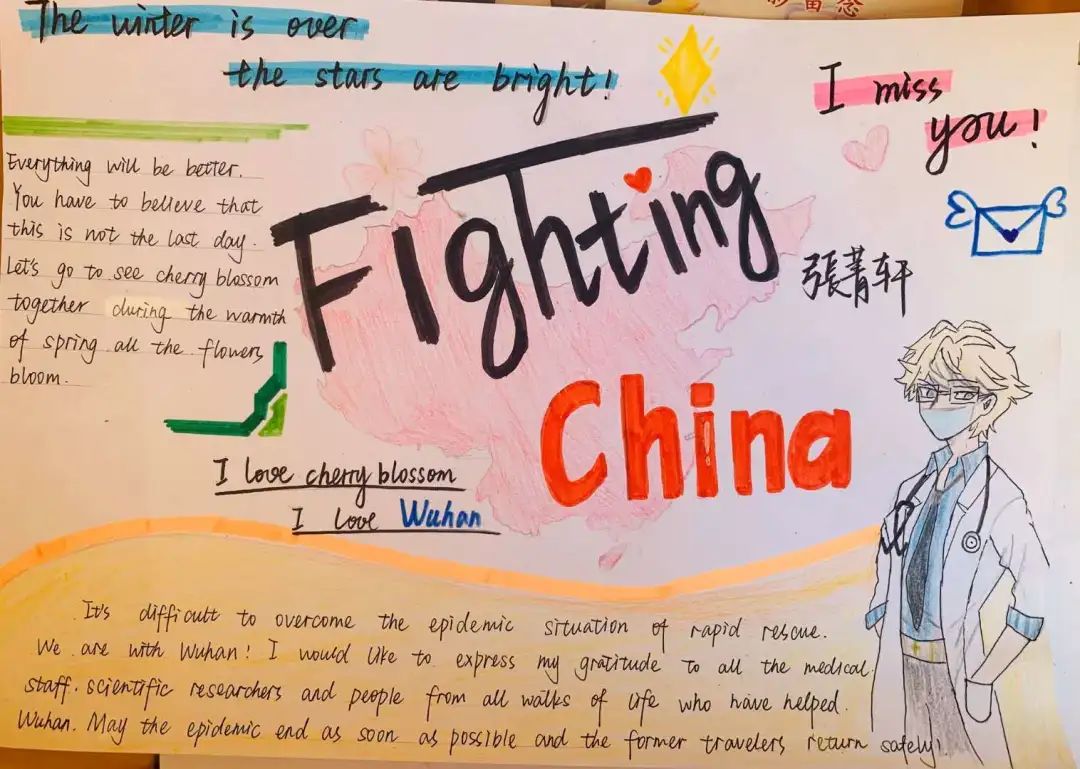 The winter is over
the stars are bright!
I miss
you!
Everything will be better.
You have to believe that
this is not the last day.
Let's go to see cherry blossom
together during the warmth
of spring all the flowers
bloom.
Fighting
China
張菁轩
I love cherry blossom
I love Wuhan
It's difficult to overcome the epidemic situation of rapid rescue.
We are with Wuhan! I would like to express my gratitude to all the medical
staff. scientific researchers and people from all walks of life who have helped.
Wuhan. May the epidemic end as soon as possible and the former travelers return safely!